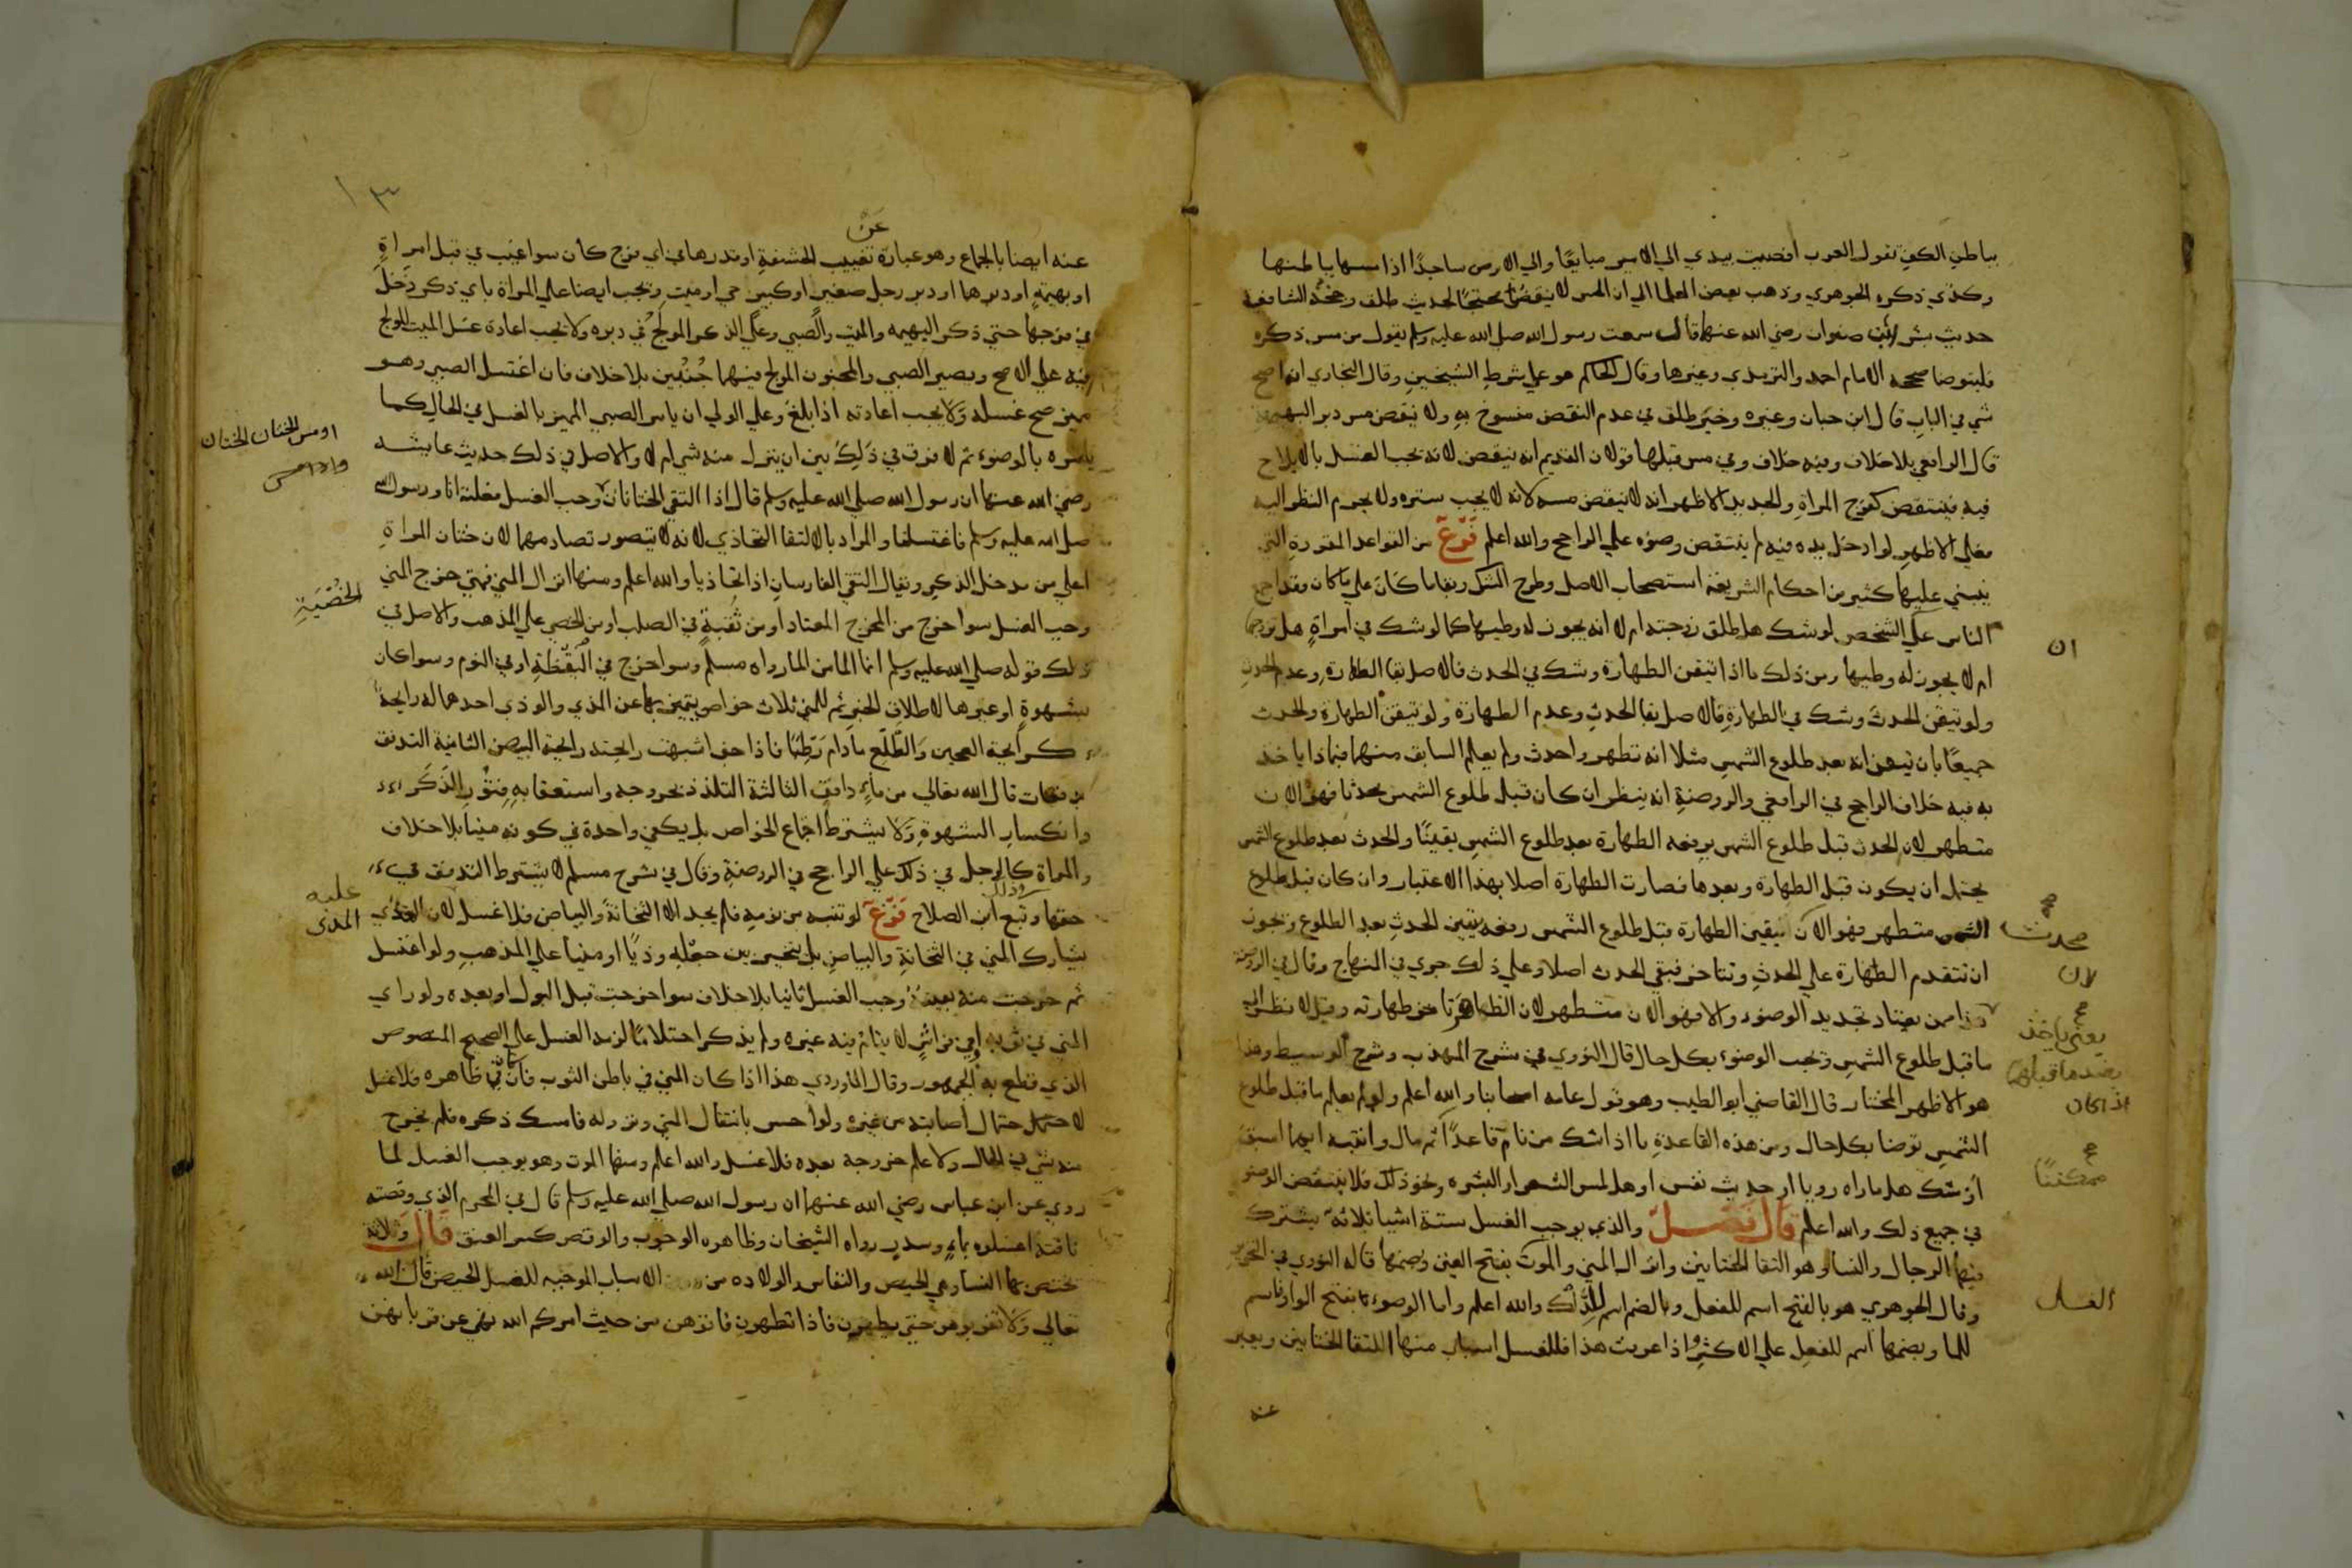 بباطن الكف تقول العرب افضيت بيدي الي الامير مبايعًا والي الارض ساجدًا اذا مسسها بباطنها
وكذي ذكره الجوهري وذهب بعض العلما الي ان المس لا ينقض محتجًا لحديث طلق وحجة الشافعي
حديث بسرة بنت صفوان رضي الله عنها قالت سمعت رسول الله صلي الله عليه وسلم يقول من مس ذكره
فليتوضا صححه الامام احمد والترمذي وغيرها وقال الحاكم هو علي شرط الشيخين وقال البخاري انه اصح
شي في الباب قال ابن حبان وغيره وخبر طلق في عدم النقض منسوخ به ولا ينقض مس دبر البهيمة
قال الرافعي بلا خلاف وفيه خلاف وفي مس قبلها قولان القديم انه ينقض لانه يجب الغسل بالايلاج
فيه فينتقض كفرج المراةِ والجديد الاظهر انه لا ينقض مسه لانه لا يجب ستره ولا يحرم النظر اليه
فعلي الاظهر لو ادخل يده فيه لم ينتقض وضوه علي الراجح والله اعلم فَرْعٌ من القواعد المقررة التي
ينبني عليها كثير من احكام الشريعة استصحاب الاصل وطرح الشك وبقا ما كان علي ما كان وقد اجمع
الناس علي ان الشخص لو شك هل طلق زوجته ام لا انه يجوز له وطيها كما لو شك في امراةٍ هل تزوجها
ام لا لا يجوز له وطيها ومن ذلك ما اذا تيقن الطهارة وشك في الحدث فالاصل بقا الطهارة وعدم الحدث
ولو تيقن الحدث وشك في الطهارة فالاصل بقا الحدث وعدم الطهارة ولو تيقن الطهارة والحدث
جميعًا بان تيقن انه بعد طلوع الشمس مثلا انه تطهر واحدث ولم يعلم السابق منهما فبماذا ياخذ
به فيه خلاف الراجح في الرافعي والروضة انه ينظر ان كان قبل طلوع الشمس محدثا فهو الان
متطهر لان الحدث قبل طلوع الشمس يرفعه الطهارة بعد طلوع الشمس يقينًا والحدث بعد طلوع الشمس
يحتمل ان يكون قبل الطهارة وبعدها فصارت الطهارة اصلا بهذا الاعتبار وان كان قبل طلوع
الشمس متطهر فهو الان تيقن الطهارة قبل طلوع الشمس رفعه يتيقن الحدث بعد الطلوع ويجوز
محدث
لان
ان تتقدم الطهارة علي الحدث وتتاخر فبقي الحدث اصلا وعلي ذلك جري في المنهاج وقال في الروضة
هذا ممن يعتاد تجديد الوضوء والا فهو الان متطهر لان الظاهر تاخر طهارته وقيل لا نظر الي
ما قبل طلوع الشمس وتجب الوضوء بكل حال قال النووي في شرح المهذب وشرح الوسيط وهذا
هو الاظهر المختار قال القاضي ابو الطيب وهو قول عامه اصحابنا والله اعلم ولو لم يعلم ما قبل طلوع
اذا كان
الشمس توضا بكل حال ومن هذه القاعدة ما اذا شك من نام قاعدًا ثم مال وانتبه ايهما اسبق
ممكنًا
او شك هل ما راه رويا او حديث نفس او هل لمس الشعر او البشره ونحو ذلك فلا ينتقض الوضو
في جميع ذلك والله اعلم قال فَصْلٌ والذي يوجب الغسل ستة اشيا ثلاثة تشترك
فيها الرجال والنسا وهو التقا الختانين وانزال المني والموت بفتح الغين وضمها قاله النووي في التحرير
الغسل
وقال الجوهري هو بالفتح اسم للفعل وبالضم اسم للدلك والله اعلم واما الوضوء بفتح الواو فاسم
للما وبضمها اسم للفعل علي الاكثر واذا عرفت هذا فللغسل اسباب منها التقا الختانين ويعبر
عنه
١٣
عَنْ
عنه ايضا بالجماع وهو عبارة تغييب الحشفة او قدرها في اي فرج كان سوا غيب في قبل امراةٍ
او بهيمةٍ او دبرها او دبر رجل صغير او كبير حي او ميت وتجب ايضا علي المراة باي ذكر دخل
في فرجها حتي ذكر البهيمه والميت والصبي وعلي الذكر المولج في دبره ولا يجب اعادة غسل الميت المولج
فيه علي الاصح ويصير الصبي والمجنون المولج فيهما جُنُبَين بلا خلاف فان اغتسل الصبي وهو
مميز صح غسله ولا يجب اعادته اذا بلغ وعلي الولي ان يامر الصبي المميز بالغسل في الحال كما
يامره بالوضوء ثم لا فرق في ذلك بين ان ينزل منه شي ام لا والاصل في ذلك حديث عايشه
او مس الختان الختان
رضي الله عنها ان رسول الله صلي الله عليه وسلم قال اذا التقي الختانان وجب الغسل فعلته انا ورسول الله
صلي الله عليه وسلم فاغتسلنا والمراد بالالتقا التحاذي لانه لا يتصور تصادمهما لان ختان المراةِ
اعلي من مدخل الذكر ويقال التقي الفارسان اذا تحاذيا والله اعلم ومنها انزال المني فمتي خرج المني
الخُصْيَةِ
وجب الغسل سوا خرج من المخرج المعتاد او من ثقبةٍ في الصلب او من الخصي علي المذهب والاصل في
ذلك قوله صلي الله عليه وسلم انما الما من الما رواه مسلم وسوا خرج في اليقظةِ او في النوم وسوا كان
بشهوةٍ او غيرها لاطلاق الخبر ثم للمني ثلاث خواص يتميز بها عن المذي والوذي احدها له رايحة
كرايحة العجين والطلع ما دام رطبًا فاذا جف اشبهت رايحته رايحة البيض الثانية التدفق
بدفعات قال الله تعالي من ماءٍ دافق الثالثة التلذذ بخروجه واستعقابه فتور الذكر
وانكسار الشهوةِ ولا يشترط اجتماع الخواص بل يكفي واحدة في كونه منيا بلا خلاف
والمراة كالرجل في ذلك علي الراجح في الروضة وقال في شرح مسلم لا يشترط التدفق في
حقها وتبع ابن الصلاح فَرْعٌ لو تنبه من نومه فلم يجد الا الثخانة والبياض فلا غسل لان الوذي
عليه
المدني
يشارك المني في الثخانة والبياض بل يتخير بين جعله وذيًا او منيا علي المذهب ولو اغتسل
ثم خرجت منه بقية وجب الغسل ثانيا بلا خلاف سوا خرجت قبل البول او بعده ولو راي
المني في ثوبه او في فراشٍ لا ينام فيه غيره ولم يذكر احتلامًا لزمه الغسل علي الصحيح المنصوص
الذي قطع به الجمهور وقال الماوردي هذا اذا كان المني في باطن الثوب فان كان في ظاهره فلا غسل
لاحتمال اصابته من غيره ولو احس بانتقال المني ونزوله فامسك ذكره فلم يخرج
منه شي في الحال ولا علم خروجه بعده فلا غسل والله اعلم ومنها الموت وهو يوجب الغسل لما
روي عن ابن عباس رضي الله عنهما ان رسول الله صلي الله عليه وسلم قال في المحرم الذي وقصته
ناقته اغسلوه بماءٍ وسدرٍ رواه الشيخان وظاهره الوجوب والوقص كسر العنق قال وثلاثة
تختص بها النسا وهي الحيض والنفاس والولاده من الاسباب الموجبه للغسل الحيض قال الله
تعالي ولا تقربوهن حتي يطهرن فاذا تطهرن فاتوهن من حيث امركم الله نهي عن قربانهن